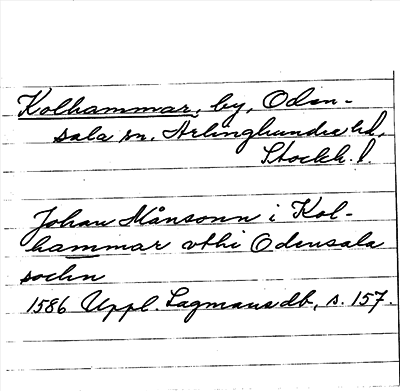 Kolhammar, by, Oden-
sala sn. Ärlinghundra hd,
Stockh. l
Johan Månsonn i Kol-
hammar vthi Odensala
sochn
1586 Uppl. Lagmansdb, s. 157.